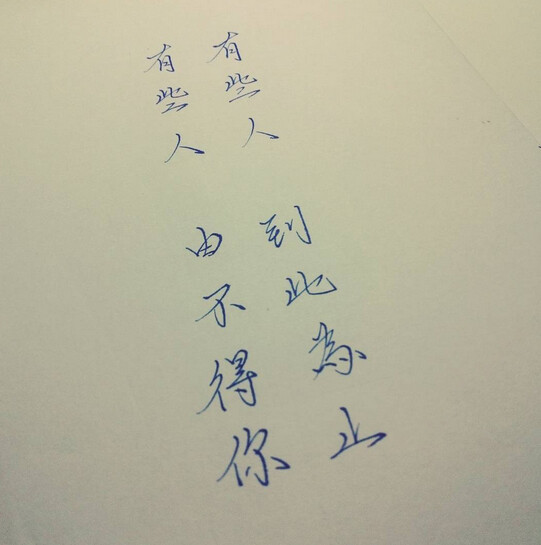 有些人 到此为止
有些人 由不得你